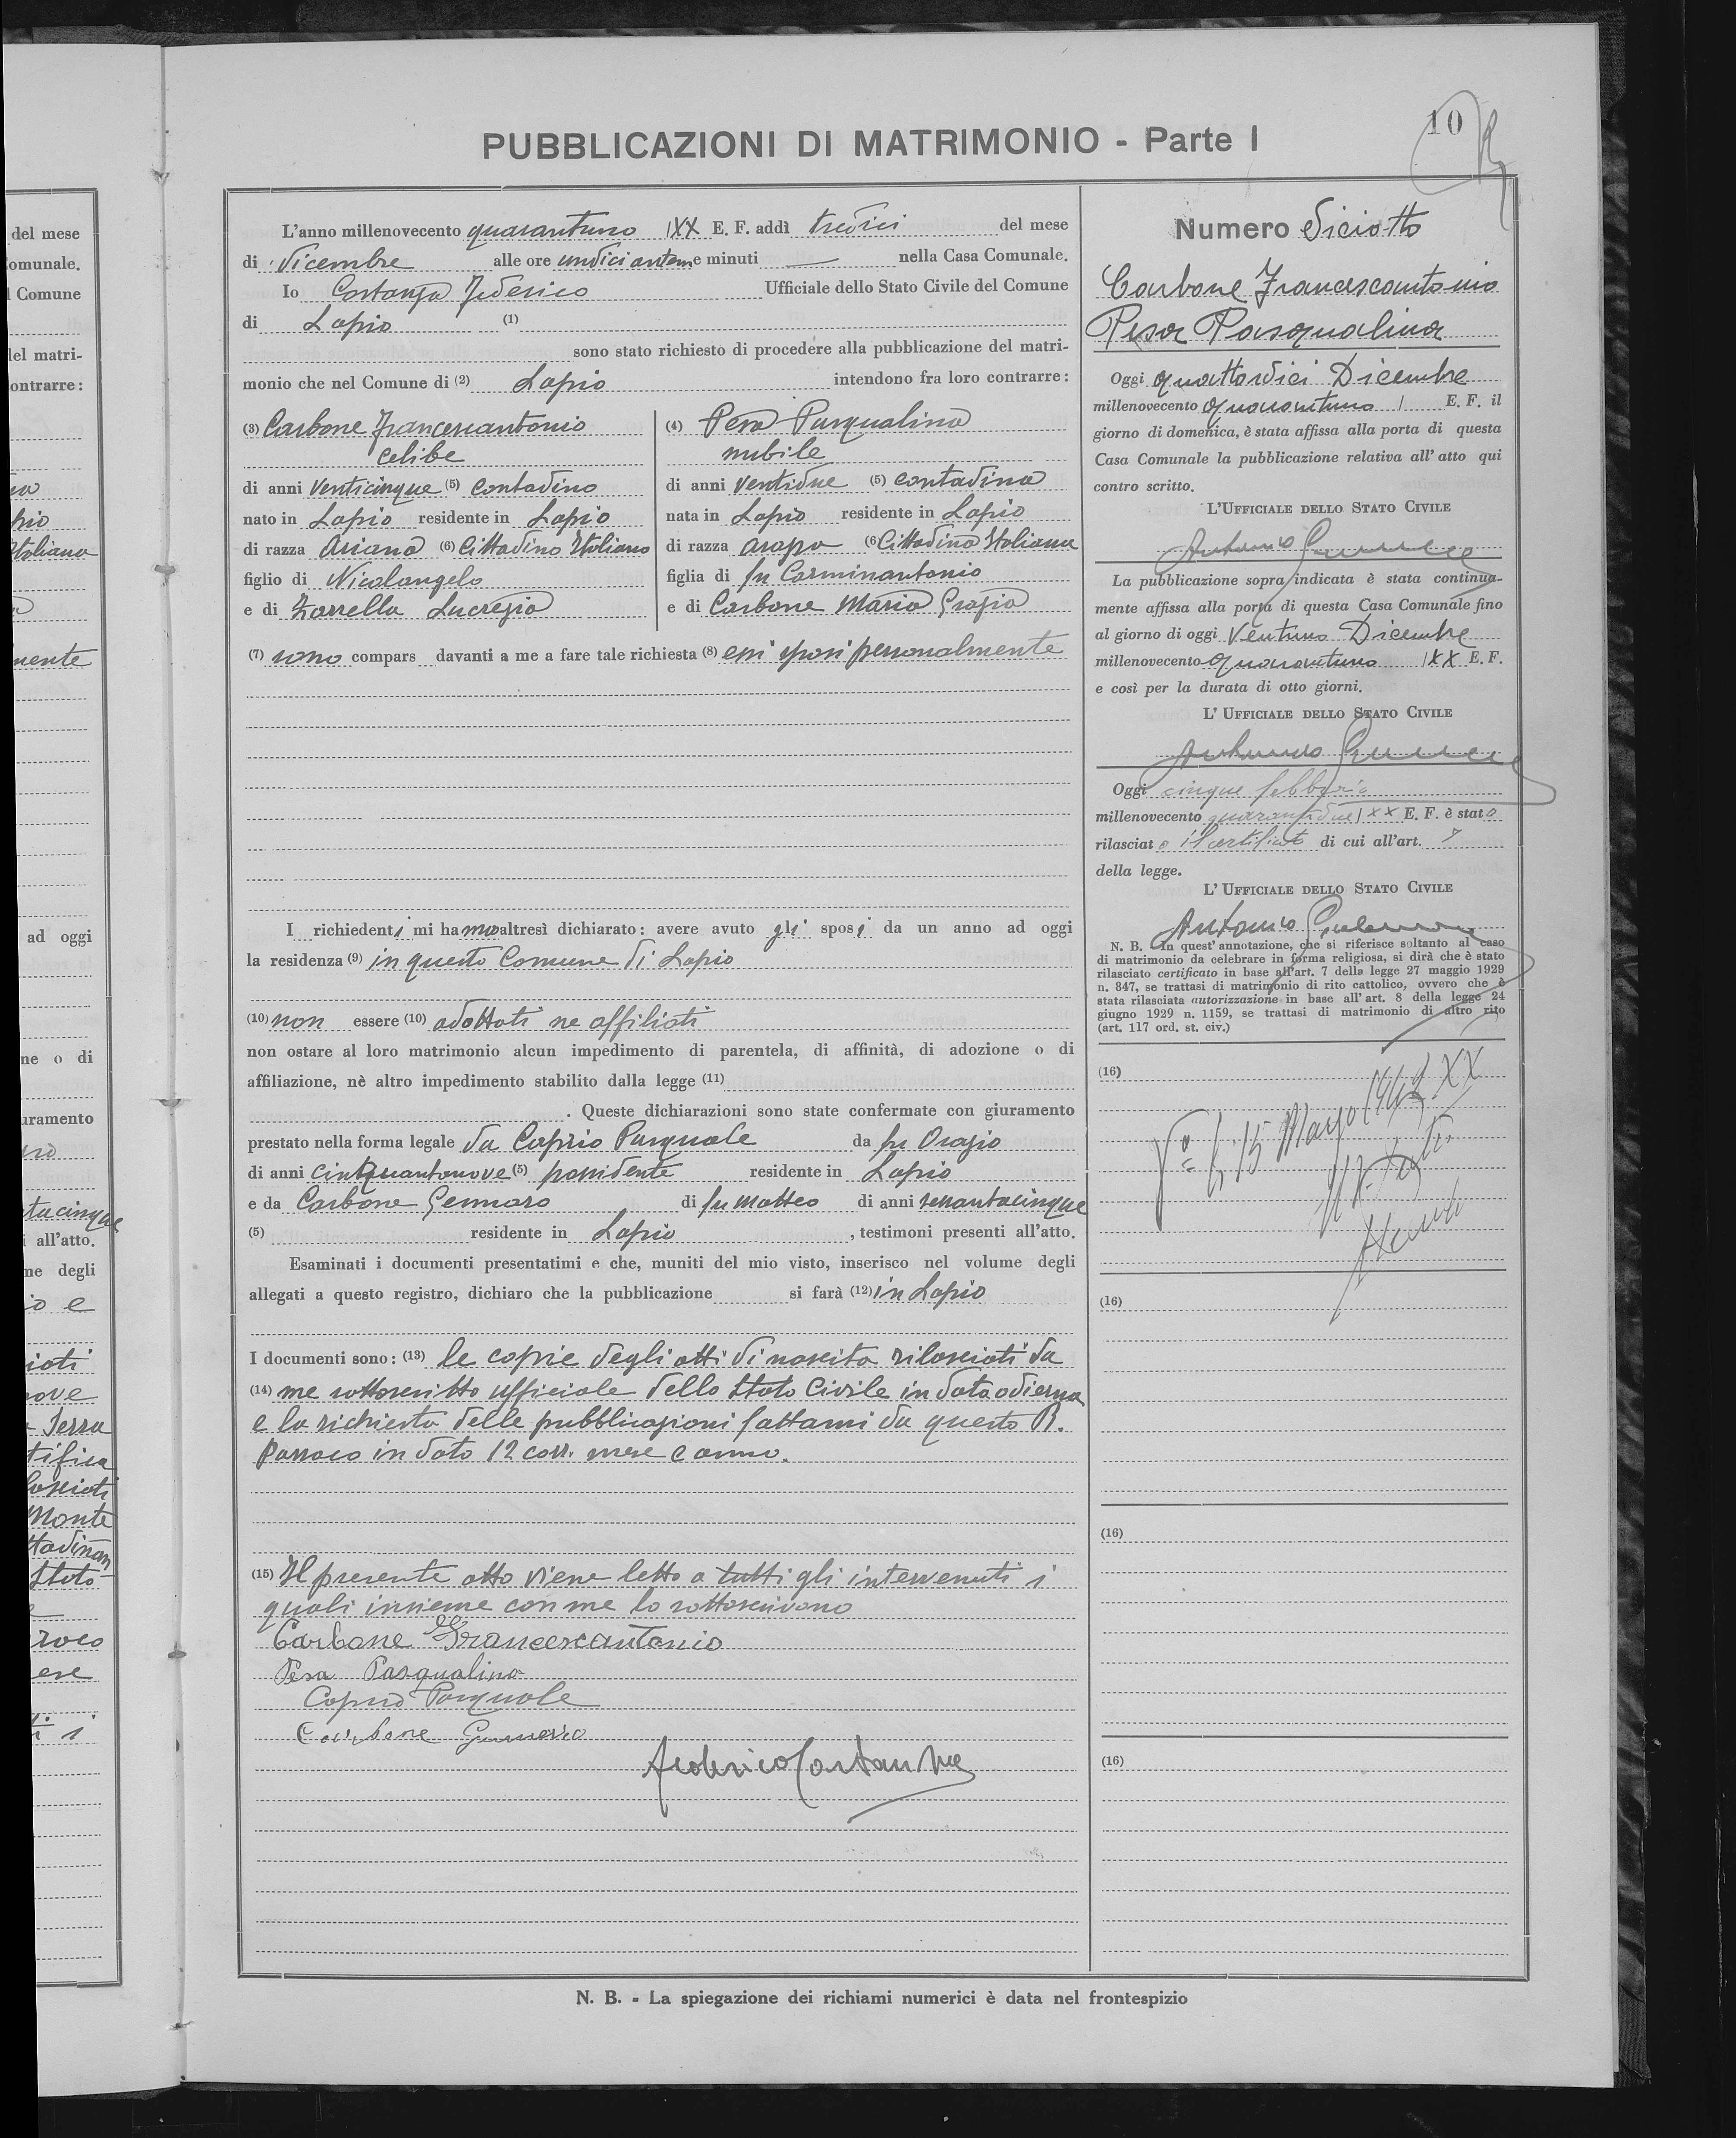 10
PUBBLICAZIONI DI MATRIMONIO - Parte I
L'anno millenovecento quarantuno XX E. F. addì tredici del mese
di dicembre alle ore undici antem e minuti — nella Casa Comunale.
Io Costanza Federico Ufficiale dello Stato Civile del Comune
di Lapio (1)
sono stato richiesto di procedere alla pubblicazione del matri-
monio che nel Comune di (2) Lapio intendono fra loro contrarre:
(3) Carbone Francescantonio
celibe
di anni venticinque (5) contadino
nato in Lapio residente in Lapio
di razza Ariana (6) Cittadino Italiano
figlio di Nicolangelo
e di Zarrella Lucrezia
(4) Pesa Pasqualina
nubile
di anni ventidue (5) contadina
nata in Lapio residente in Lapio
di razza (6 Cittadina Italiana
figlia di fu Carminantonio
e di Carbone Maria Grazia
(7) sono compars davanti a me a fare tale richiesta (8) essi sposi personalmente
I richiedenti mi hanno altresì dichiarato: avere avuto gli sposi da un anno ad oggi
la residenza (9) in questo Comune di Lapio
(10) non essere (10) adottati ne affiliati
non ostare al loro matrimonio alcun impedimento di parentela, di affinità, di adozione o di
affiliazione, nè altro impedimento stabilito dalla legge (11)
. Queste dichiarazioni sono state confermate con giuramento
prestato nella forma legale da Caprio Pasquale da fu Orazio
di anni cinquantanove (5) possidente residente in Lapio
e da Carbone Gennaro di fu Matteo di anni sessantacinque
(5) residente in Lapio , testimoni presenti all'atto.
Esaminati i documenti presentatimi e che, muniti del mio visto, inserisco nel volume degli
allegati a questo registro, dichiaro che la pubblicazione si farà (12) in Lapio
I documenti sono: (13) le copie degli atti di nascita rilasciati da
(14) me sottoscritto ufficiale dello Stato Civile in data odierna
e la richiesta delle pubblicazioni fattami da questo R.
Parroco in data 12 corr. mese e anno.
(15) Il presente atto viene letto a tutti gli intervenuti i
quali insieme con me lo sottoscrivono
Carbone Francescantonio
Pesa Pasqualina
Caprio Pasquale
Carbone Gennaro
Federico Costanza
Numero diciotto
Carbone Francescantonio
Pesa Pasqualina
Oggi quattordici Dicembre
millenovecento quarantuno E. F. il
giorno di domenica, è stata affissa alla porta di questa
Casa Comunale la pubblicazione relativa all'atto qui
contro scritto.
L'UFFICIALE DELLO STATO CIVILE
Antonio
La pubblicazione sopra indicata è stata continua-
mente affissa alla porta di questa Casa Comunale fino
al giorno di oggi ventuno Dicembre
millenovecento quarantuno XX E. F.
e così per la durata di otto giorni.
L'UFFICIALE DELLO STATO CIVILE
Antonio
Oggi cinque febbraio
millenovecento quarantadue XX E. F. è stato
rilasciato il certificato di cui all'art. 7
della legge.
L'UFFICIALE DELLO STATO CIVILE
Antonio
N. B. In quest'annotazione, che si riferisce soltanto al caso
di matrimonio da celebrare in forma religiosa, si dirà che è stato
rilasciato certificato in base all'art. 7 della legge 27 maggio 1929
n. 847, se trattasi di matrimonio di rito cattolico, ovvero che è
stata rilasciata autorizzazione in base all'art. 8 della legge 24
giugno 1929 n. 1159, se trattasi di matrimonio di altro rito
(art. 117 ord. st. civ.)
(16)
15 Marzo 1942 XX
(16)
(16)
(16)
N. B. - La spiegazione dei richiami numerici è data nel frontespizio